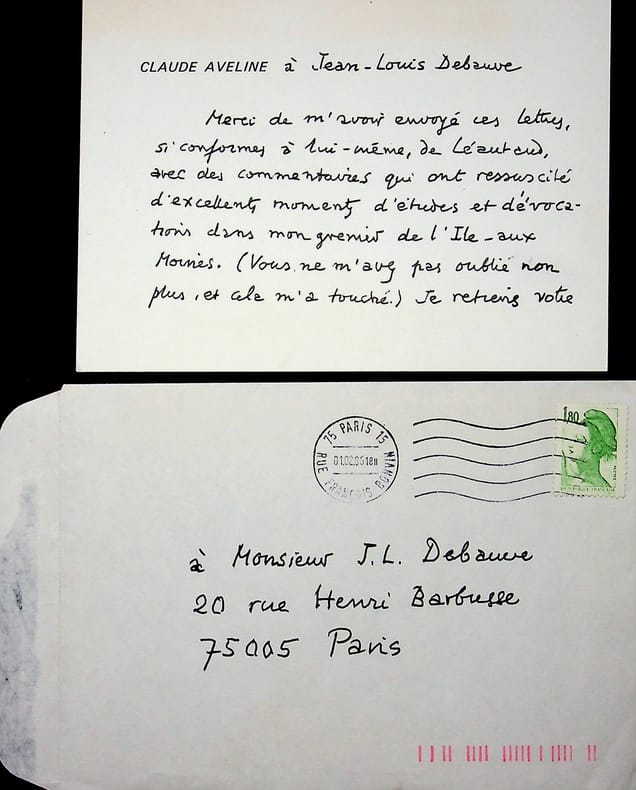 CLAUDE AVELINE à Jean-Louis Debauve
Merci de m'avoir envoyé ces lettres,
si conformes à lui-même, de Léautaud,
avec des commentaires qui ont ressuscité
d'excellents moments d'études et d'évoca-
tions dans mon grenier de l'Ile-aux
Moines. (Vous ne m'avez pas oublié non
plus, et cela m'a touché.) Je retiens votre
75 PARIS 15
01.02.86 18H
RUE FRANÇOIS BONVIN
1,80
à Monsieur J.L. Debauve
20 rue Henri Barbusse
75005 Paris